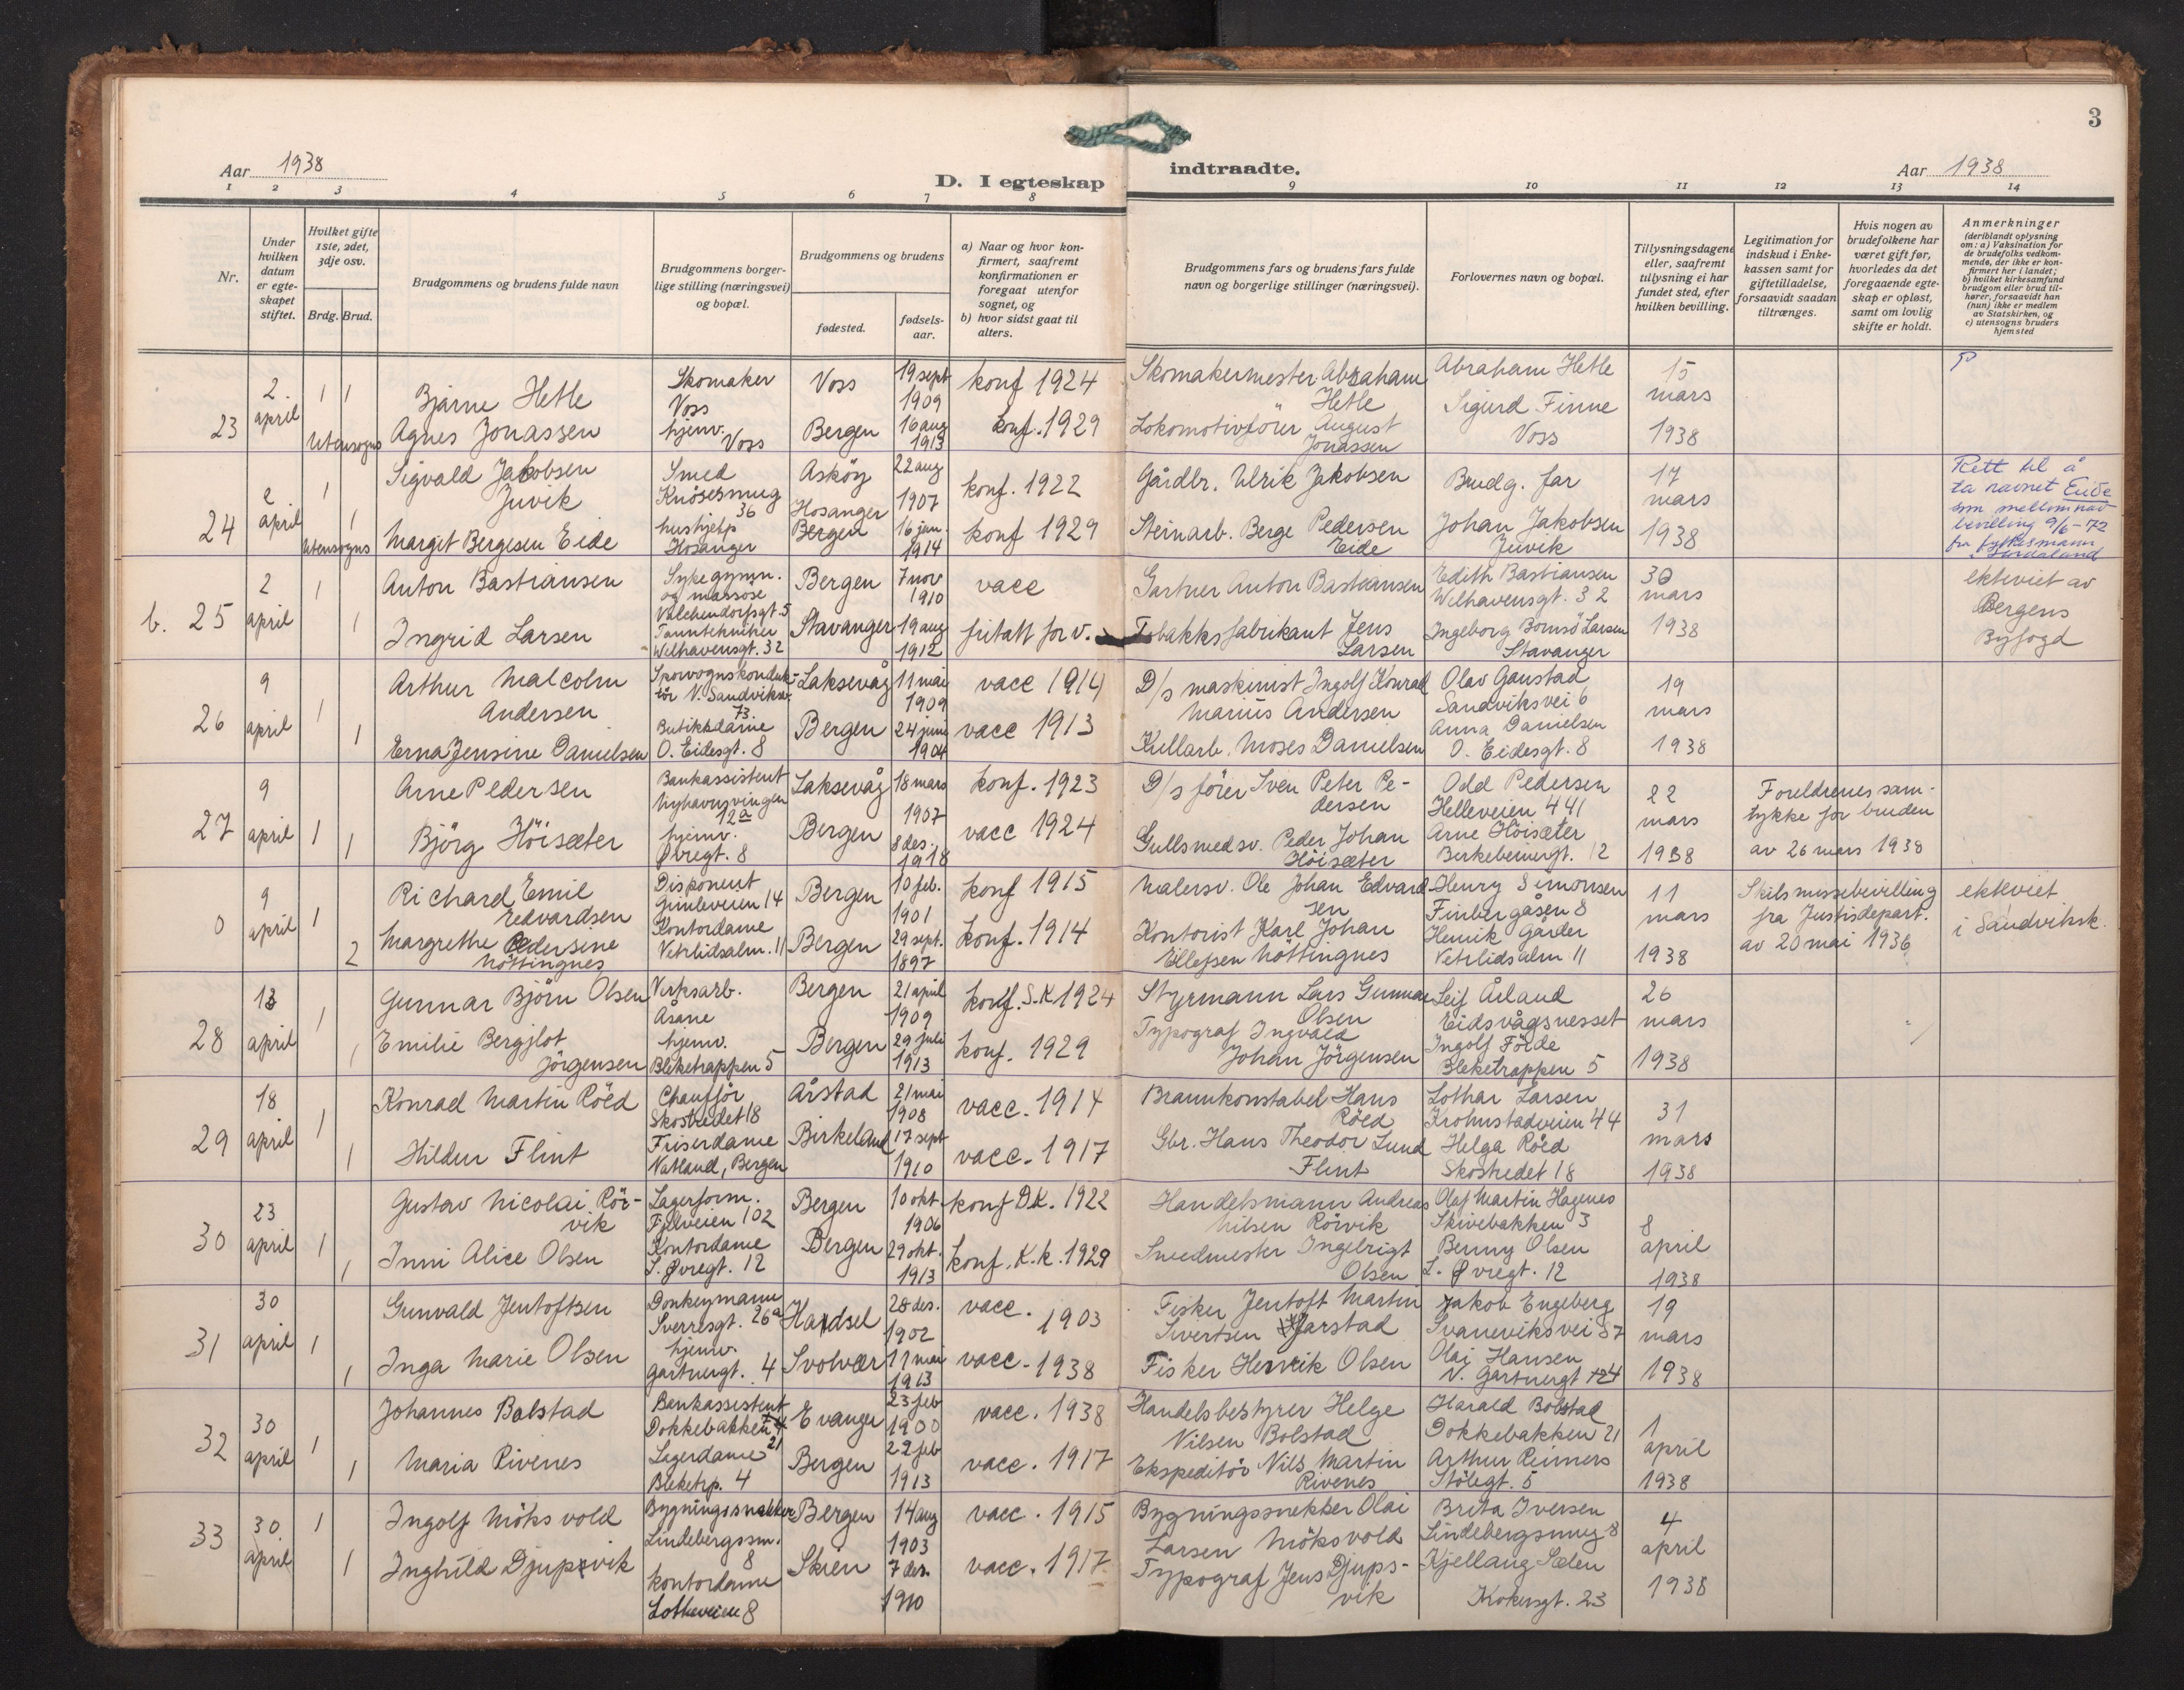 3
Aar 1938
D. I egteskap
indtraadte.
Aar 1938
1 2 3 4 5 6 7 8 9 10 11 12 13 14
Nr.
Under hvilken datum er egte-skapet stiftet.
Hvilket gifte 1ste, 2det, 3dje osv.
Brdg. Brud.
Brudgommens og brudens fulde navn
Brudgommens borger-lige stilling (næringsvei) og bopæl.
Brudgommens og brudens
fødested.
fødsels-aar.
a) Naar og hvor kon-firmert, saafremt konfirmationen er foregaat utenfor sognet, og
b) hvor sidst gaat til alters.
Brudgommens fars og brudens fars fulde navn og borgerlige stillinger (næringsvei).
Forlovernes navn og bopæl.
Tillysningsdagene eller, saafremt tillysning ei har fundet sted, efter hvilken bevilling.
Legitimation for indskud i Enke-kassen samt for giftetilladelse, forsaavidt saadan tiltrænges.
Hvis nogen av brudefolkene har været gift før, hvorledes da det foregaaende egte-skap er opløst, samt om lovlig skifte er holdt.
Anmerkninger
(deriblandt oplysning om: a) Vaksination for de brudefolks vedkom-mende, der ikke er kon-firmert her i landet; b) hvilket kirkesamfund brudgom eller brud til-hører, forsaavidt han (hun) ikke er medlem av Statskirken, og c) utensogns bruders hjemsted
23 2. april 1 1 utensogns
Bjarne Hetle
Agnes Jonassen
Skomaker Voss
hjemv. Voss
Voss 19 sept 1909 konf 1924
Bergen 16 aug 1913 konf. 1929
Skomakermester Abraham Hetle
Lokomotivfører August Jonassen
Abraham Hetle
Sigurd Finne
Voss
15 mars 1938
24 2. april 1 1 utensogns
Sigvald Jakobsen Juvik
Margit Bergesen Eide
Smed Knøsesmug 36
hushjelp Hosanger
Askøy 22 aug 1907 konf. 1922
Hosanger
Bergen 16 jan. 1914 konf 1929
Gårdbr. Ulrik Jakobsen
Steinarb. Berge Pedersen Eide
Brudg. far
Johan Jakobsen Juvik
17 mars 1938
Rett til å ta navnet Eide som mellomnav bevilling 9/6-72 fra fylkesmann i Hordaland
b. 25 2 april 1 1
Anton Bastiansen
Ingrid Larsen
Sykegymn. og massøse
Valchendorfsgt. 5
Tanntekniker
Welhavensgt. 32
Bergen 7 nov 1910 vacc
Stavanger 19 aug 1912 fritatt for v.
Gartner Anton Bastiansen
Tobakksfabrikant Jens Larsen
Edith Bastiansen
Welhavensgt. 32
Ingeborg Bomsö Larsen
Stavanger
30 mars 1938
ekteviet av Bergens Byfogd
26 9 april 1 1
Arthur Malcolm Andersen
Erna Jensine Danielsen
Sporvognskonduk-tör N. Sandviksv. 73.
Butikkdame
O. Eidesgt. 8
Laksevåg 11 mai 1909 vacc 1914
Bergen 24 juni 1904 vacc 1913
D/s maskinist Ingolf Konrad Marius Andersen
Kullarb. Moses Danielsen
Olav Gaustad
Sandviksvei 6
Anna Danielsen
O. Eidesgt. 8
19 mars 1938
27 9 april 1 1
Arne Pedersen
Björg Höisæter
Bankassistent
Nyhavnsvingen 12a
hjemv.
Øvregt. 8
Laksevåg 18 mars 1907 konf. 1923
Bergen 8 des. 1918 vacc 1924
D/s förer Sven Peter Pe-dersen
Gullsmedsv. Peder Johan Höisæter
Odd Pedersen
Helleveien 441
Arne Höisæter
Birkebeinergt. 12
22 mars 1938
Foreldrenes sam-tykke for bruden av 26 mars 1938
0 9 april 1 2
Richard Emil Edvardsen
Margrethe Pedersine Nöttingnes
Disponent
Gimleveien 14
Kontordame
Vetrlidsalm. 11
Bergen 10 feb. 1901 konf 1915
Bergen 29 sept. 1897 konf. 1914
Malersv. Ole Johan Edvard-sen
Kontorist Karl Johan Ellefsen Nöttingnes
Henry Simonsen
Finbergåsen 8
Henrik Gårder
Vetrlidsalm 11
11 mars 1938
Skilsmissebevilling fra Justisdepart. av 20 mai 1936
ekteviet i Sandviksk.
28 13 april 1 1
Gunnar Björn Olsen
Emilie Bergjlot Jörgensen
Verksarb.
Åsane
hjemv.
Bleketrappen 5
Bergen 21 april 1909 konf. S.K 1924
Bergen 29 juli 1913 konf. 1929
Styrmann Lars Gunnar Olsen
Typograf Ingvald Johan Jörgensen
Leif Årland
Eidsvågsnesset
Ingolf Förde
Bleketrappen 5
26 mars 1938
29 18 april 1 1
Konrad Martin Röed
Hildur Flint
Chauffør
Skostredet 18
Friserdame
Natland, Bergen
Årstad 21 mai 1908 vacc. 1914
Birkeland 17 sept 1910 vacc. 1917
Brannkonstabel Hans Röed
Gbr. Hans Theodor Lund Flint
Lothar Larsen
Krohnstadveien 44
Helga Röed
Skostredet 18
31 mars 1938
30 23 april 1 1
Gustav Nicolai Rör-vik
Inni Alice Olsen
Lagerform.
Fjelveien 102
Kontordame
L. Øvregt. 12
Bergen 10 okt. 1906 konf D.K. 1922
Bergen 29 okt. 1913 konf. K.k. 1929
Handelsmann Andreas Nilsen Rörvik
Smedmester Ingebrigt Olsen
Olaf Martin Hagenes
Skivebakken 3
Benny Olsen
L. Øvregt. 12
8 april 1938
31 30 april 1 1
Gunvald Jentoftsen
Inga Marie Olsen
Donkeymann
Sverresgt. 26a
hjemv.
Gartnergt. 4
Hadsel 28 des. 1902 vacc. 1903
Svolvær 11 mai 1913 vacc. 1938
Fisker Jentoft Martin Sivertsen Hjarstad
Fisker Henrik Olsen
Jakob Engeberg
Svaneviksvei 57
Olai Hansen
N. Gartnergt 24
19 mars 1938
32 30 april 1 1
Johannes Bolstad
Maria Rivenes
Bankassistent
Dokkebakken 21
Lagerdame
Bleketrp. 4
Evanger 23 feb 1900 vacc. 1938
Bergen 22 feb 1913 vacc. 1917
Handelsbestyrer Helge Nilsen Bolstad
Ekspeditör Nils Martin Rivenes
Harald Bolstad
Dokkebakken 21
Arthur Reimers
Stölegt. 5
1 april 1938
33 30. april 1 1
Ingolf Möksvold
Inghild Djupsvik
Bygningssnekker
Lindebergssm. 8
kontordame
Lotheveien 8
Bergen 14 aug 1903 vacc. 1915
Skien 7 des. 1910 vacc. 1917
Bygningssnekker Olai Larsen Möksvold
Typograf Jens Djups-vik
Breta Iversen
Lindebergsmug 8
Kjellaug Sælen
Krokengt. 23
4 april 1938